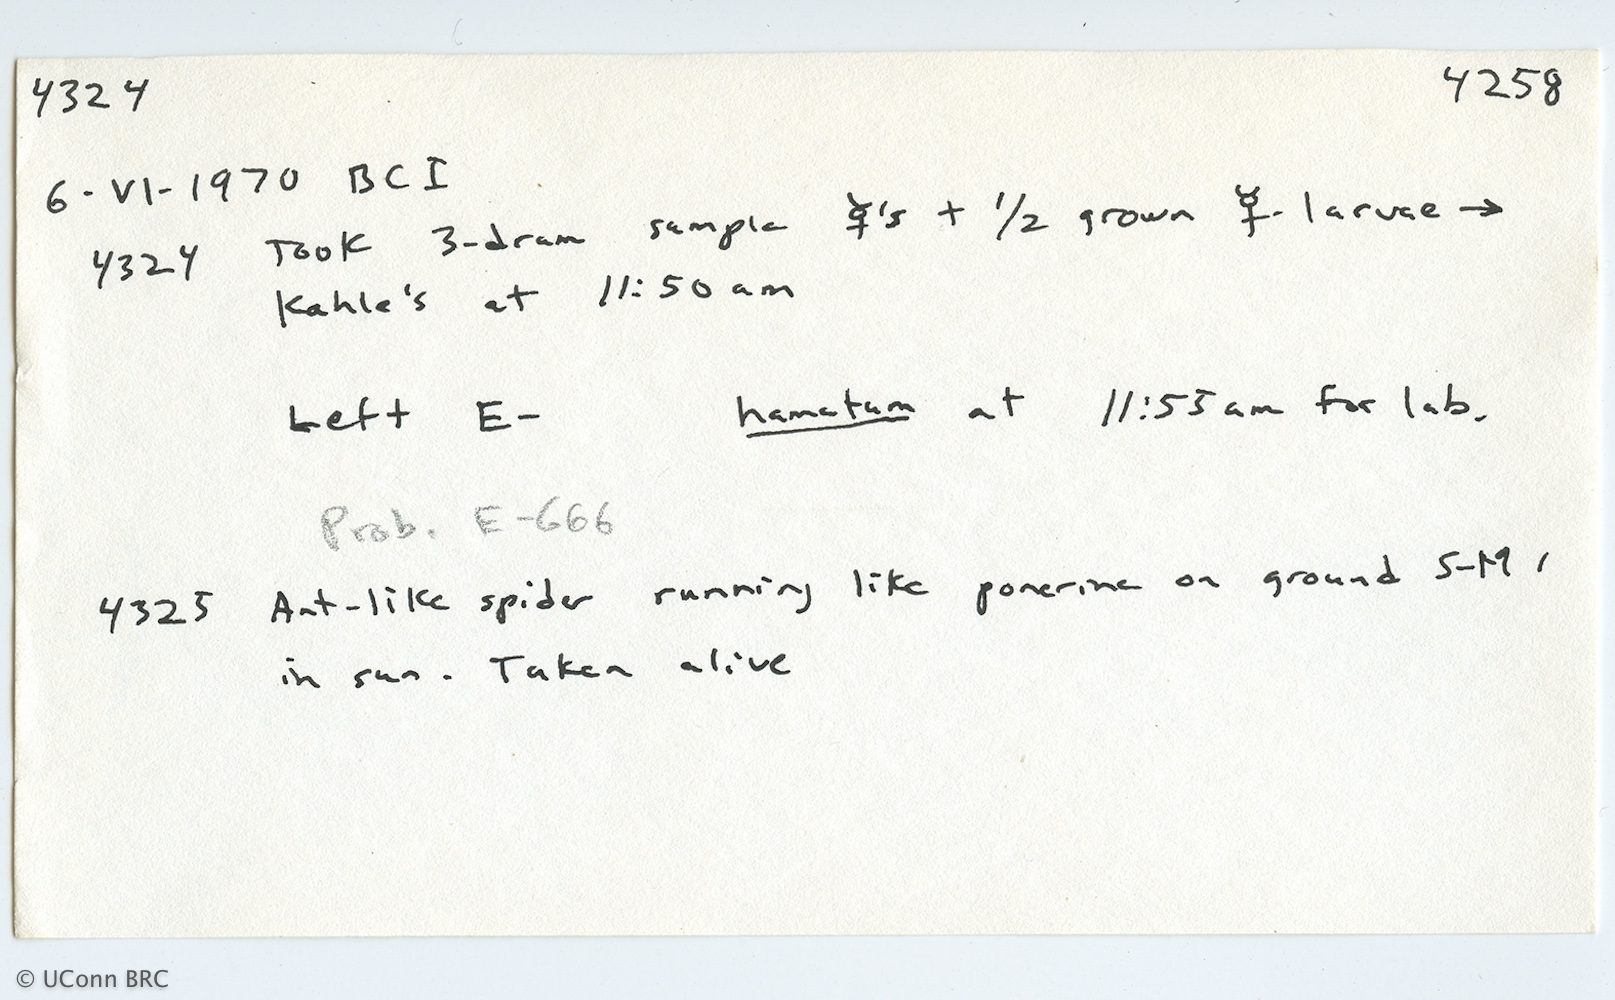 4324 4258
6-VI-1970 BCI
4324 Took 3-dram sample ☿'s + 1/2 grown ☿ larvae →
Kahle's at 11:50 am
Left E- hamatum at 11:55 am for lab.
Prob. E-666
4325 Ant-like spider running like ponerine on ground S-M,
in sun. Taken alive
© UConn BRC